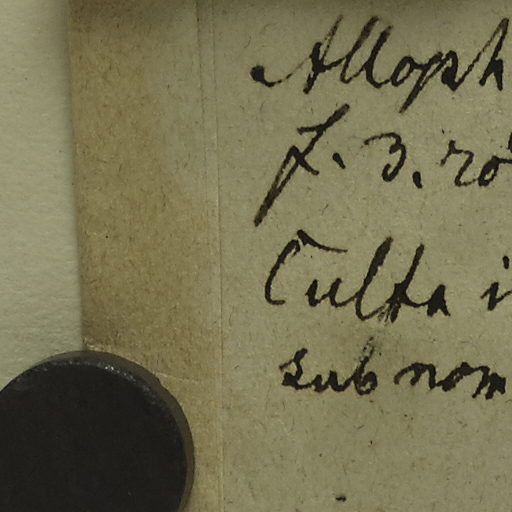 Alloph
f. 3. ro
Culta i
sub nom